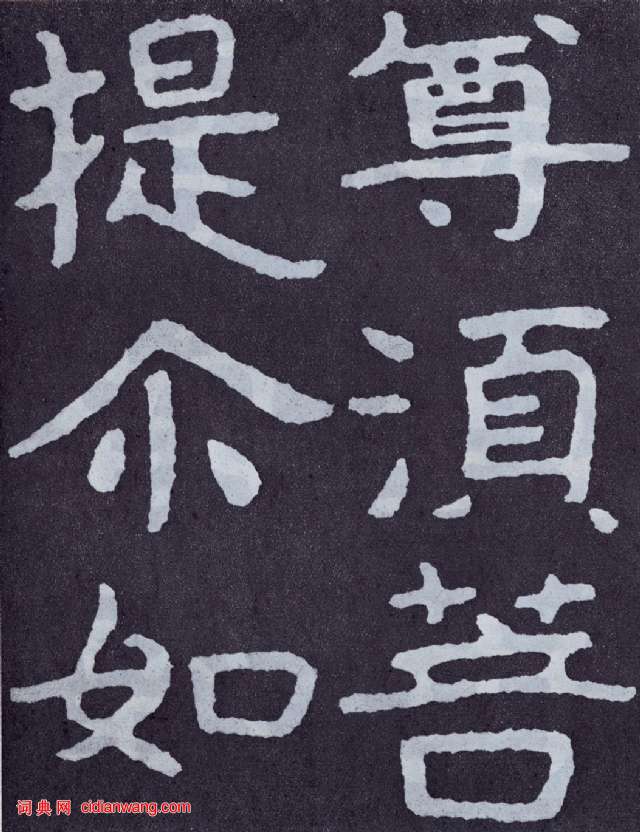 尊湏菩
提尒如
词典网 cidianwang.com